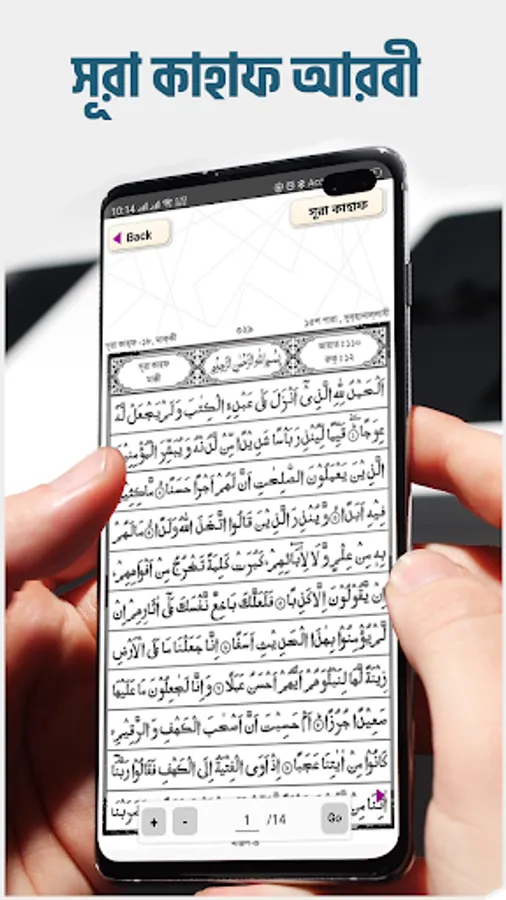 সূরা কাহাফ আরবী
10:14
Back
সূরা কাহাফ
সূরা কাহ্ফ -১৮, মাক্কী
৩২৯
১৫শ পারা , সুব্‌হানাল্লাযী
সূরা কাহ্ফ
মাক্কী
بِسْمِ اللهِ الرَّحْمٰنِ الرَّحِيْمِ
আয়াত : ১১০
রুকূ : ১২
اَلْحَمْدُ لِلّٰهِ الَّذِيْ اَنْزَلَ عَلٰى عَبْدِهِ الْكِتٰبَ وَلَمْ يَجْعَلْ لَّهٗ
عِوَجًا ۞ قَيِّمًا لِّيُنْذِرَ بَاْسًا شَدِيْدًا مِّنْ لَّدُنْهُ وَيُبَشِّرَ الْمُؤْمِنِيْنَ
الَّذِيْنَ يَعْمَلُوْنَ الصّٰلِحٰتِ اَنَّ لَهُمْ اَجْرًا حَسَنًا ۞ مَّاكِثِيْنَ
فِيْهِ اَبَدًا ۞ وَّيُنْذِرَ الَّذِيْنَ قَالُوا اتَّخَذَ اللهُ وَلَدًا ۞ مَا لَهُمْ
بِهٖ مِنْ عِلْمٍ وَّلَا لِاٰبَآئِهِمْ كَبُرَتْ كَلِمَةً تَخْرُجُ مِنْ اَفْوَاهِهِمْ
اِنْ يَّقُوْلُوْنَ اِلَّا كَذِبًا ۞ فَلَعَلَّكَ بَاخِعٌ نَّفْسَكَ عَلٰى اٰثَارِهِمْ اِنْ
لَّمْ يُؤْمِنُوْا بِهٰذَا الْحَدِيْثِ اَسَفًا ۞ اِنَّا جَعَلْنَا مَا عَلَى الْاَرْضِ
زِيْنَةً لَّهَا لِنَبْلُوَهُمْ اَيُّهُمْ اَحْسَنُ عَمَلًا ۞ وَاِنَّا لَجٰعِلُوْنَ مَا عَلَيْهَا
صَعِيْدًا جُرُزًا ۞ اَمْ حَسِبْتَ اَنَّ اَصْحٰبَ الْكَهْفِ وَالرَّقِيْمِ
كَانُوْا مِنْ اٰيٰتِنَا عَجَبًا ۞ اِذْ اَوَى الْفِتْيَةُ اِلَى الْكَهْفِ فَقَالُوْا رَبَّنَا
+ - 1 /14 Go